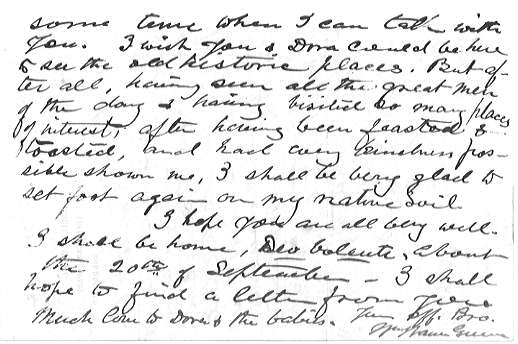 some time when I can talk with
you. I wish you & Dora could be here
to see the old historic places. But af-
ter all, having seen all the great men
of the day & having visited so many places
of interest, after having been feasted &
toasted, and had every kindness pos-
sible shown me, I shall be very glad to
set foot again on my native soil
I hope you are all very well.
I shall be home, Deo volente, about
the 20th of September - I shall
hope to find a letter from you
Much love to Dora & the babies. Your aff. Bro.